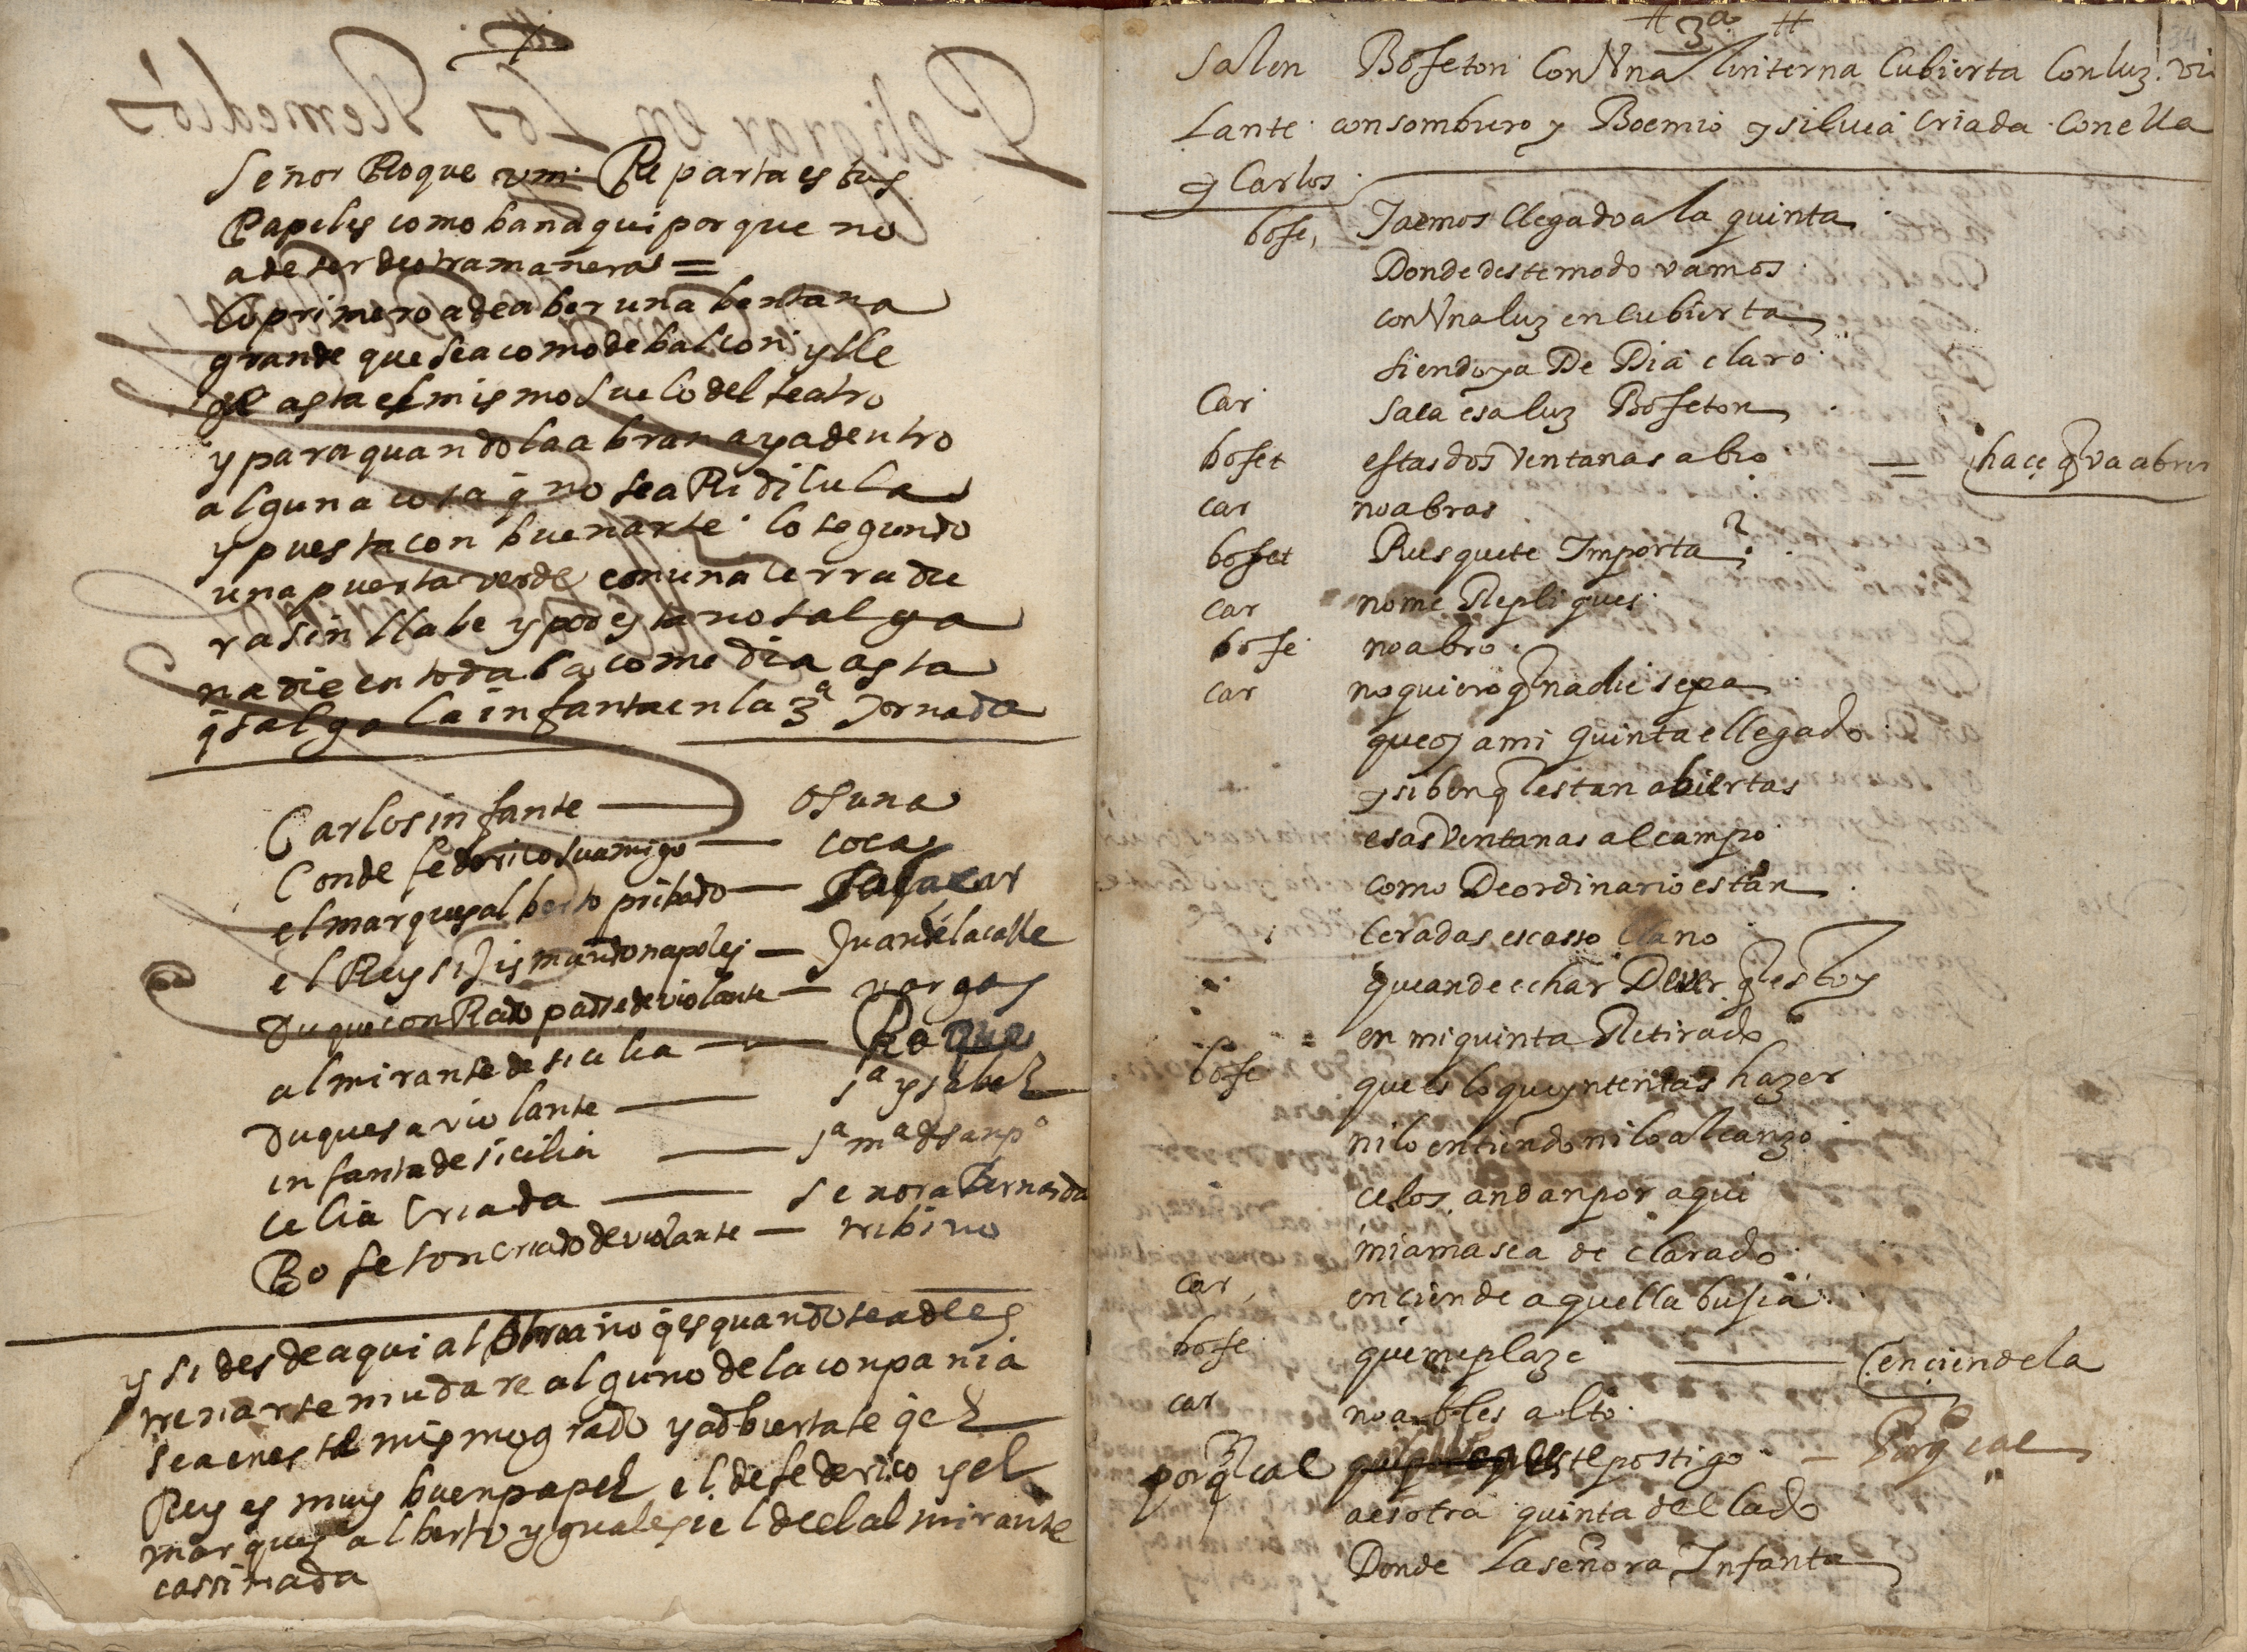 Señor Roque vm. Reparta estos
Papeles como ban aqui por que no
a de ser de otra manera =
lo primero a de aber una bentana
grande que sea como de balcon y lle
gue asta el mismo suelo del teatro
y para quando la abran aya dentro
alguna cosa q no sea Ridicula
y puesta con buen arte. lo segundo
una puerta verde con una cerradu
ra sin llabe y por esta no salga
nadie en toda la comedia asta
q salga la infanta en la 3ª Jornada
Carlos infante — osuna
Conde federico su amigo — coca
el marques alberto pribado — Salacar
el Rey sijismundo napoles — Juan de la calle
Duque conRado padre de violante — vargas
almirante de sicilia — Roque
Duquesa violante — sª ysabel
infanta de sicilia — sª mª d sanpº
celia criada — señora Bernarda
Bofeton criado de violante — tribino
y si desde aqui al q es quando se a de es
trenar se mudare alguno de la conpañia
sea en este mismo grado y adbiertase q el
Rey es muy buen papel el de federico y el
marques alberto yguales i el del almirante
cassi nada
Peligrar en Los Remedios
# 3ª #
34
Salen Bofeton Con Vna linterna Cubierta Con luz. vio
Lante con sombrero y Boemio y silvia criada con ella
y Carlos
bofe, Ya emos llegado a la quinta
Donde deste modo vamos
con Vna luz encubierta
siendo ya De Dia claro
Car Saca esa luz Bofeton
bofet estas dos ventanas abro = hace q va abrir
car no abras
bofet Pues que te Importa?
car no me Repliques
bofe no abro.
car no quiero q nadie sepa
que oy a mi quinta e llegado
y si ben q estan abiertas
esas ventanas al campo
como De ordinario estan
ceradas es casso llano
que an de echar De ver q estoy
en mi quinta Retirado
bofe que es lo que yntentas hazer
ni lo entiendo ni lo alcanzo
celos andan por aqui
mi ama se a declarado
car, enciende aquella busia
bofe que me plaze — enciendela
car no ables alto
porq cae este postigo — Porq cae
a esotra quinta del lado
Donde La señora Infanta